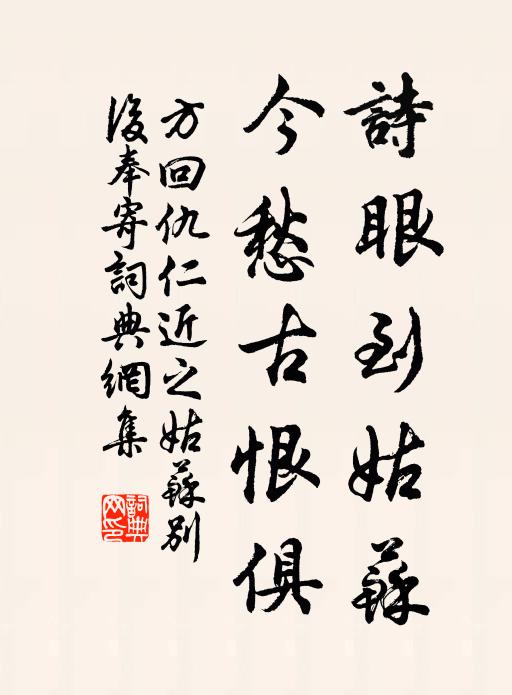 詩眼到姑蘇
今愁古恨俱
方回仇仁近之姑蘇別
後奉寄詞典網集
詞典網印